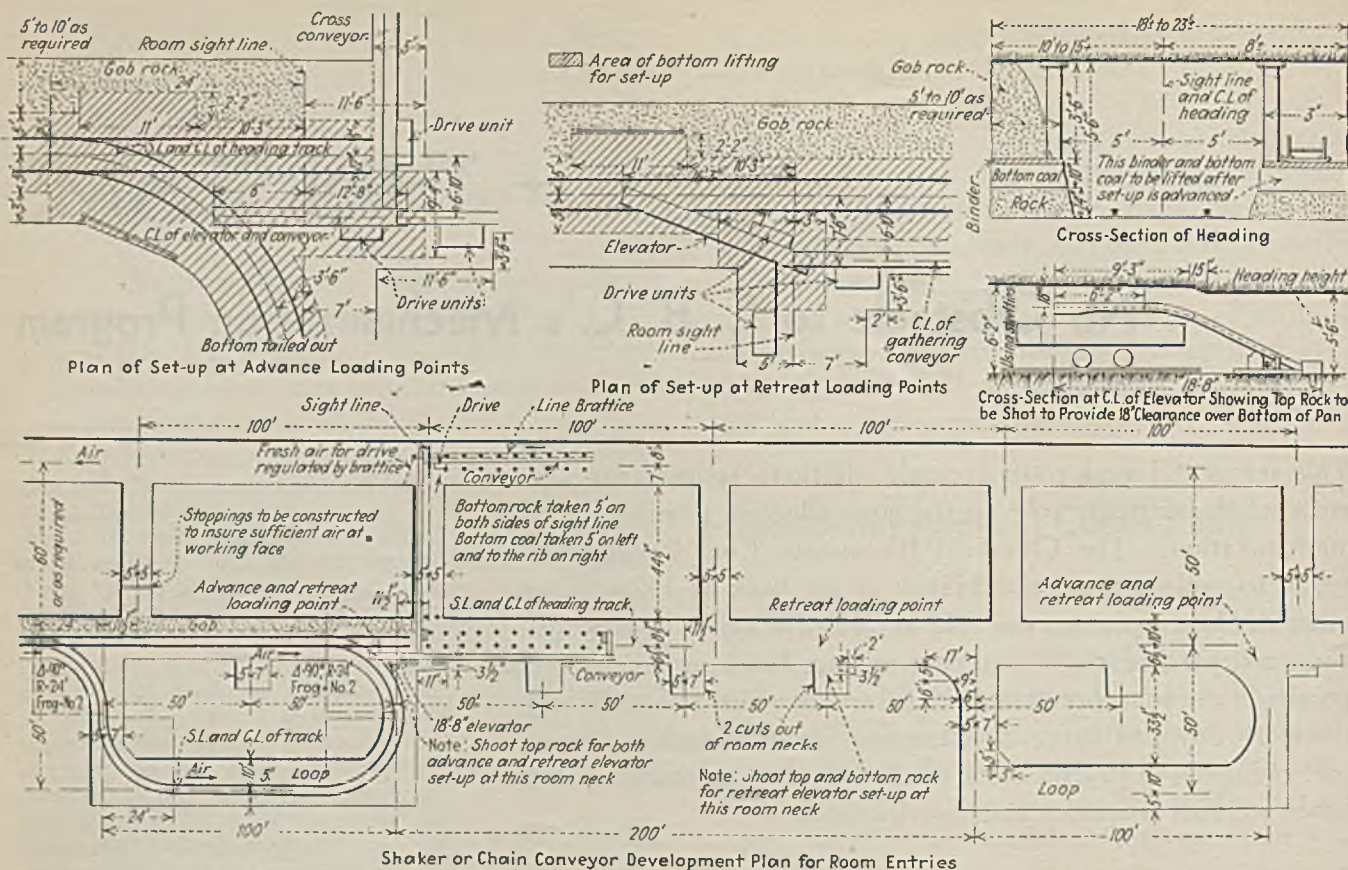 5' to 10' as
required
Room sight line
Cross
conveyor
5'
Gob rock
24'
2'-2"
11'-6"
11'
10'-3"
Drive unit
S.L. and C.L. of heading track
6'
12'-8"
6'-10"
C.L. of elevator and conveyor
3'-6"
7'
11'-6"
Drive units
Bottom tailed out
Plan of Set-up at Advance Loading Points
Area of bottom lifting
for set-up
5' to 10' as
required
Gob rock
2'-2"
11'
10'-3"
Elevator
Drive units
Room sight
line
3'-6"
2'
5'
7'
C.L. of
gathering
conveyor
Plan of Set-up at Retreat Loading Points
18'± to 23'±
10' to 15'
8'±
Gob rock
Sight line
and C.L. of
heading
3'
5'
5'
Bottom coal
Rock
Binder
This binder and bottom
coal to be lifted after
set-up is advanced
Cross-Section of Heading
9'-3"
15"
Heading height
6'-2"
18"
6'-2"
5'-6"
18'-8"
Cross-Section at C.L. of Elevator Showing Top Rock to
be Shot to Provide 18" Clearance over Bottom of Pan
Sight line
Drive
Line Brattice
100'
100'
100'
100'
Air
Fresh air for drive
regulated by brattice
Conveyor
60'
or as required
Stoppings to be constructed
to insure sufficient air at
working face
Bottom rock taken 5' on
both sides of sight line
Bottom coal taken 5' on left
and to the rib on right
44½'
50'
Advance and retreat
loading point
11½'
S.L. and C.L. of heading track
Retreat loading point
Advance and
retreat loading point
24'
Gob
Air
Δ-90°
R-24'
Frog-No 2
Δ-90° R-24'
Frog-No. 2
11'
3½"
Conveyor
2'
3½"
17'
50'
50'
50'
50'
50'
50'
50'
50'
33½'
50'
18'-8" elevator
Note: Shoot top rock for both
advance and retreat elevator
set-up at this room neck
2 cuts out
of room necks
S.L. and C.L. of track
Air
Loop
10'
5'
Note: Shoot top and bottom rock
for retreat elevator set-up at
this room neck
Loop
24'
100'
200'
100'
Shaker or Chain Conveyor Development Plan for Room Entries